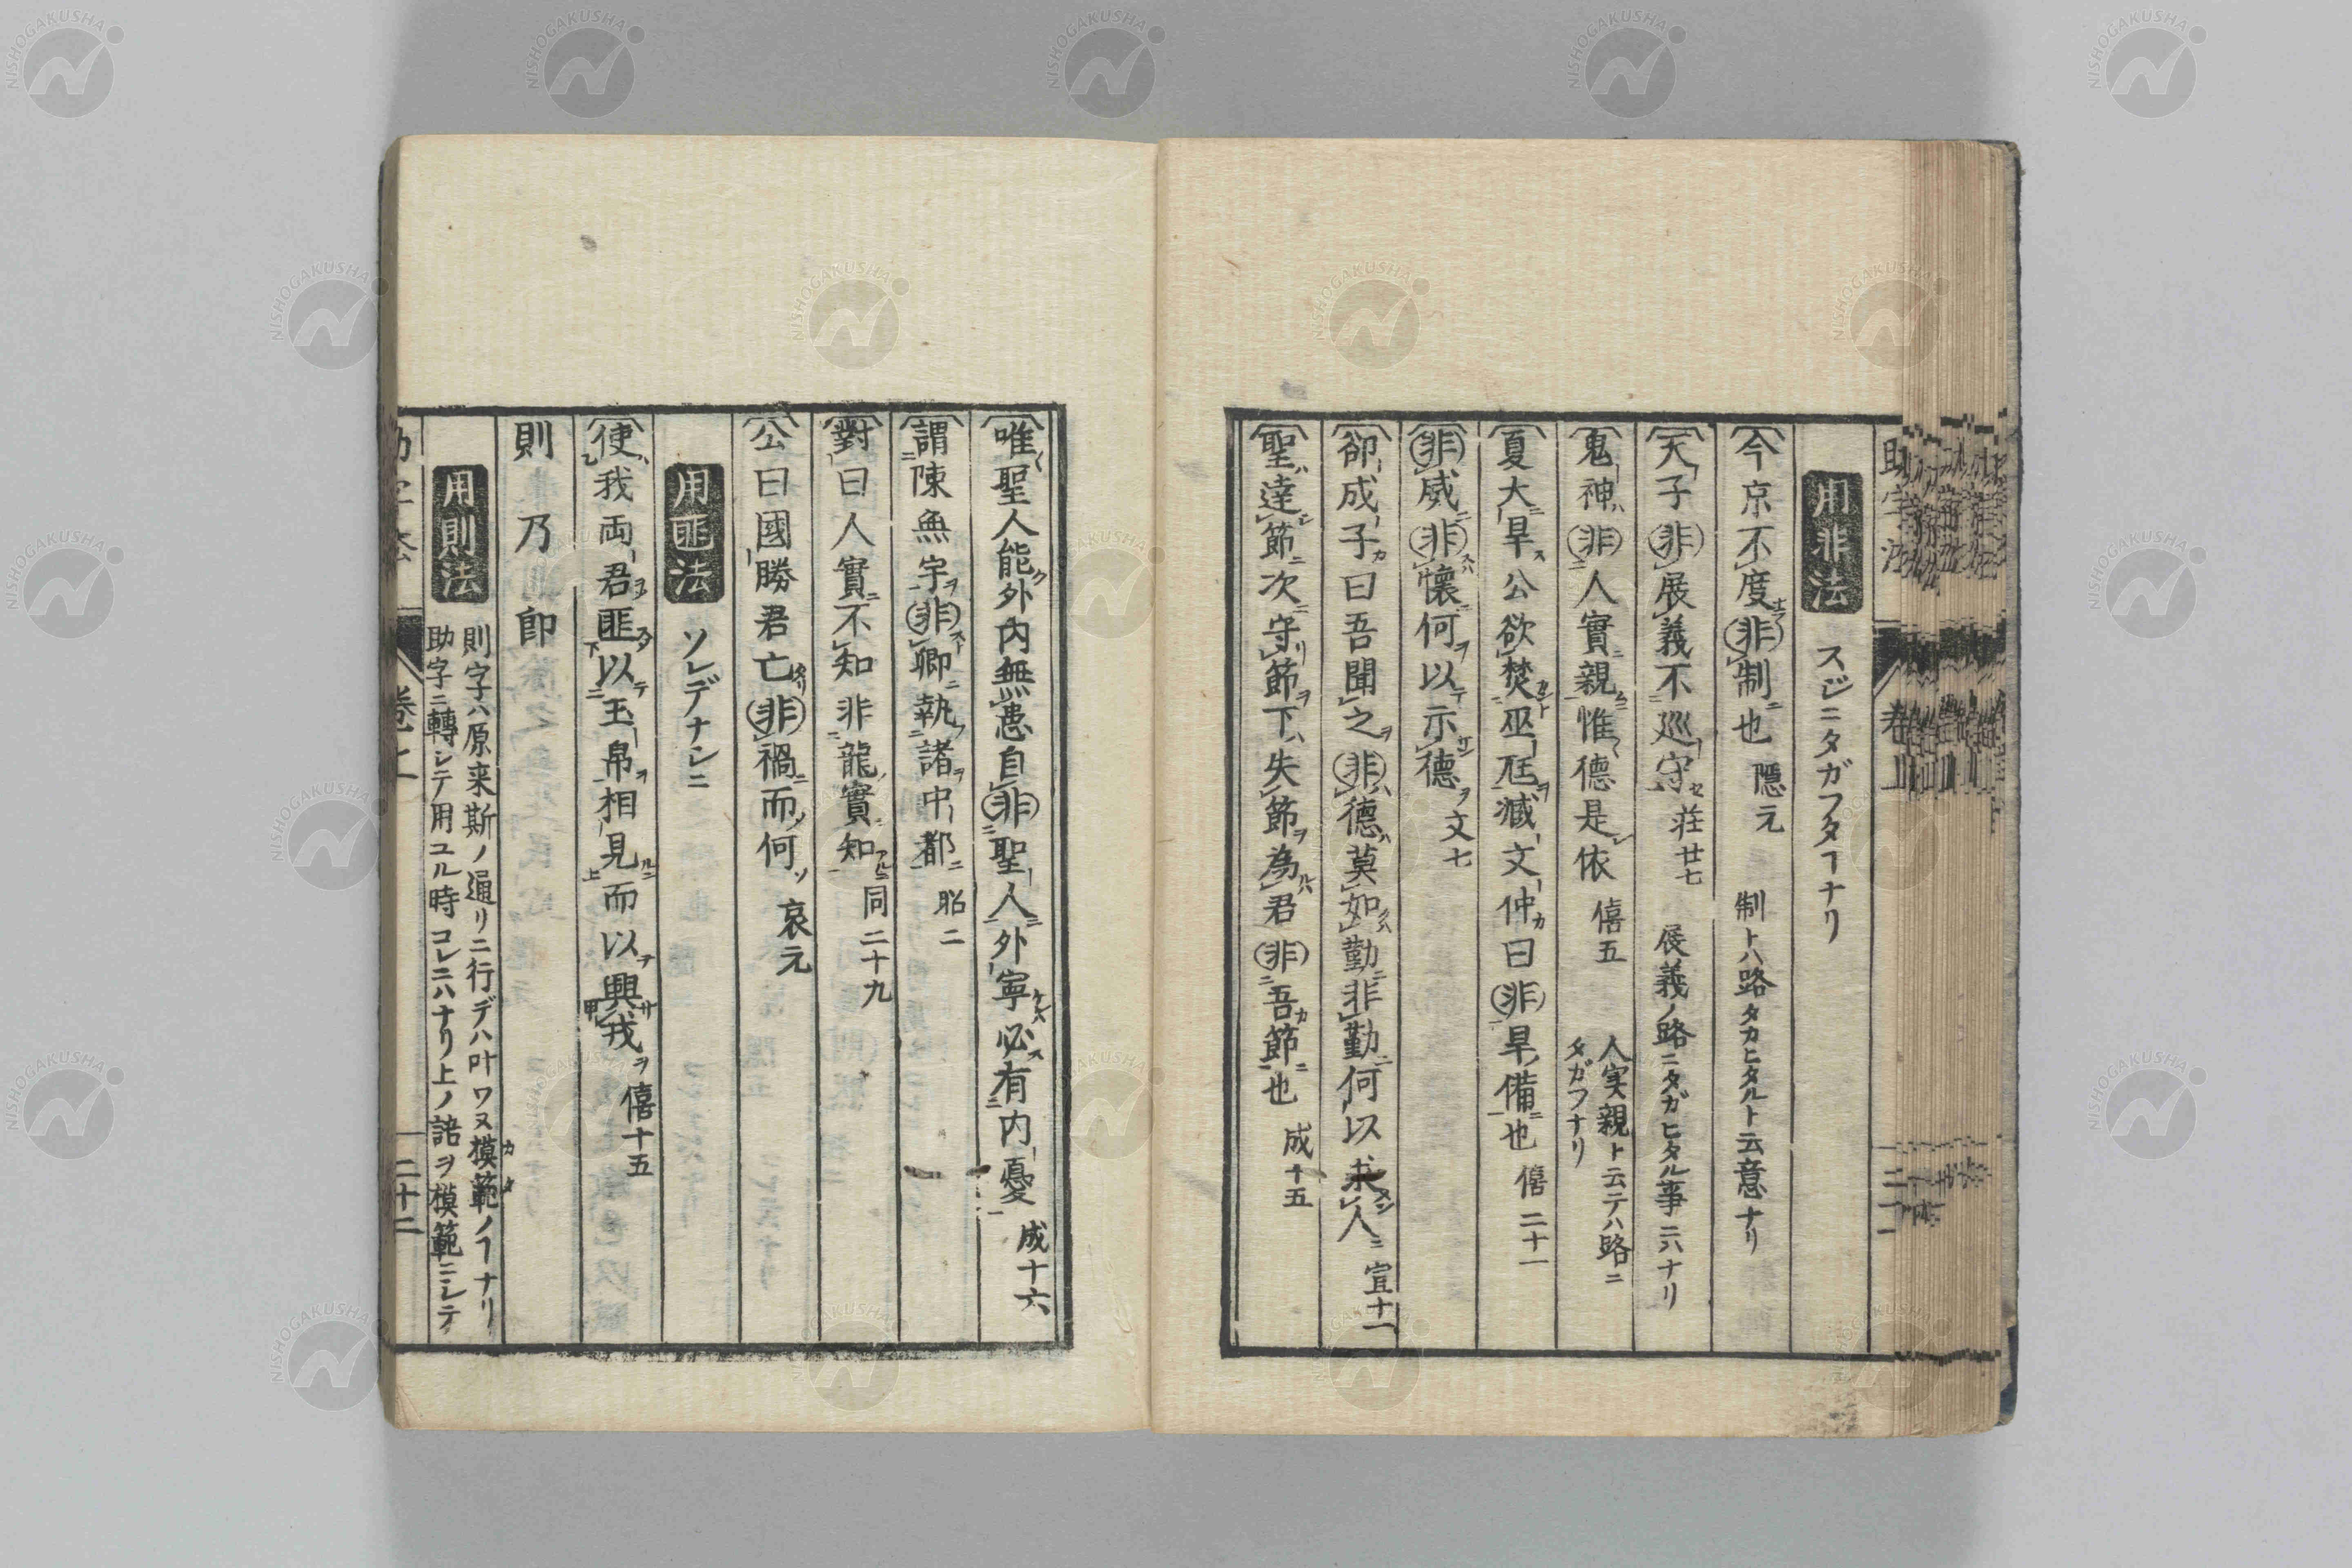 用非法 スジニタガフタヿナリ
今京不度非制也 隱元 制トハ路タカヒタルト云意ナリ
天子非展義不巡守 荘廿七 展義ノ路ニタガヒタル事ニハナリ
鬼神非人實親惟德是依 僖五 人実親ト云テハ路ニ
タガフナリ
夏大旱公欲焚巫尫臧文仲曰非旱備也 僖二十一
非威非懷何以示德 文七
郤成子曰吾聞之非德莫如勤非勤何以求人 宣十一
聖達節次守節下失節為君非吾節也 成十五
唯聖人能外内無患自非聖人外寧必有内憂 成十六
謂陳無宇非卿執諸中都 昭二
對曰人實不知非龍實知 同二十九
公曰國勝君亡非禍而何 哀元
用匪法 ソレデナシニ
使我両君匪以玉帛相見而以興戎 僖十五
則 乃 即
用則法 則字ハ原来斯ノ通リニ行デハ叶ワヌ模範ノヿナリ
助字ニ轉シテ用ユル時コレニハナリ上ノ語ヲ模範ニシテ
助字法 卷上 二十二
NISHOGAKUSHA